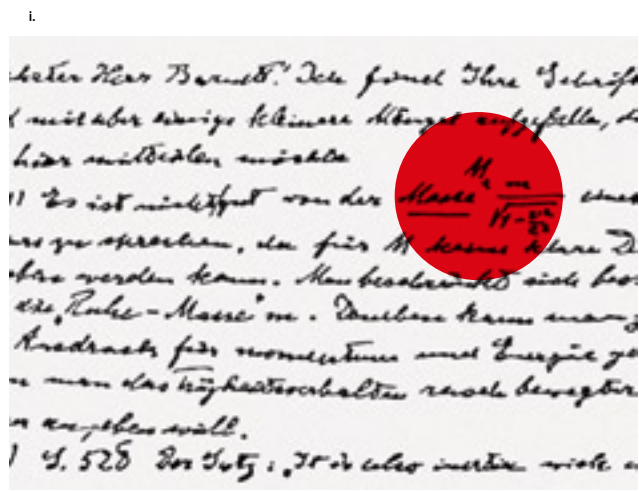 i.
Herr Barnett! Ich fand Ihre Schrift
mir aber einige kleinere Mängel aufgefallen,
hier mitteilen möchte
Es ist nicht gut von der Masse M = m/√(1-v²/c²) eines
zu sprechen, da für M keine klare
werden kann. Man beschränkt sich
die „Ruhe-Masse" m. Daneben kann man
Ausdruck für momentum und Energie
man das Trägheitsverhalten rasch bewegter
angeben will.
) S. 528 Der Satz: „It is also inertia